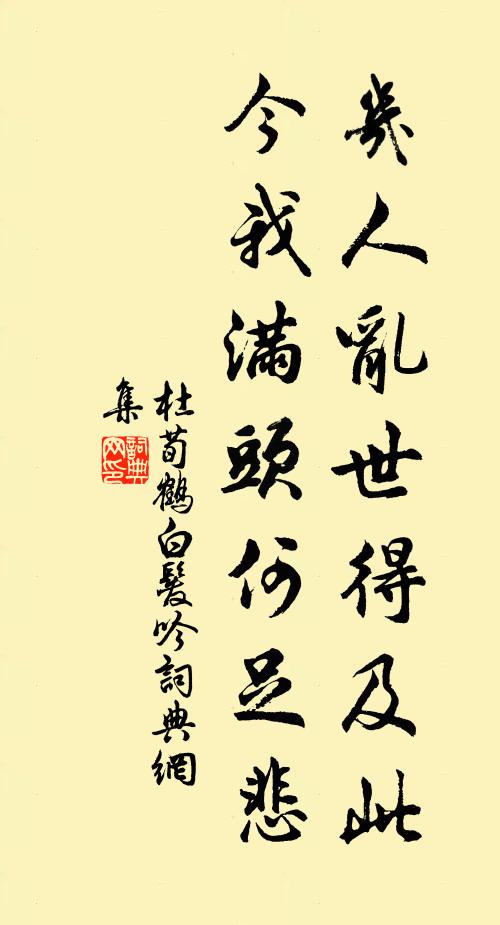 幾人亂世得及此
今我滿頭何足悲
杜荀鶴白髮吟詞典網
集
詞典網印